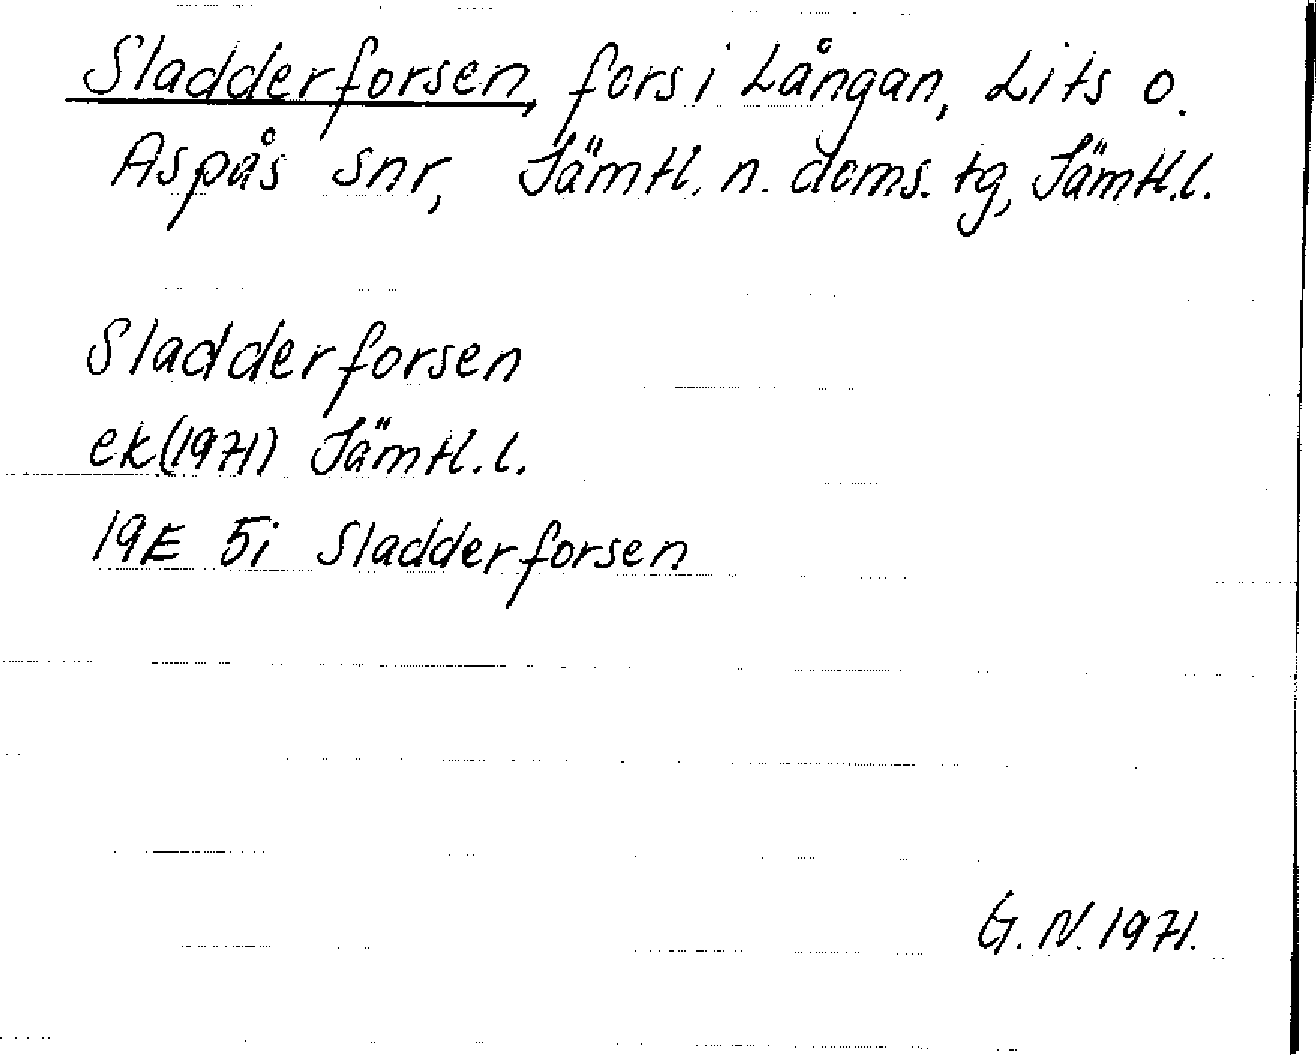 Sladderforsen, fors i Långan, Lits o.
Aspås snr, Jämtl. n. doms. tg, Jämtl.l.
Sladderforsen
ek(1971) Jämtl.l.
19E 5i Sladderforsen
G.N. 1971.